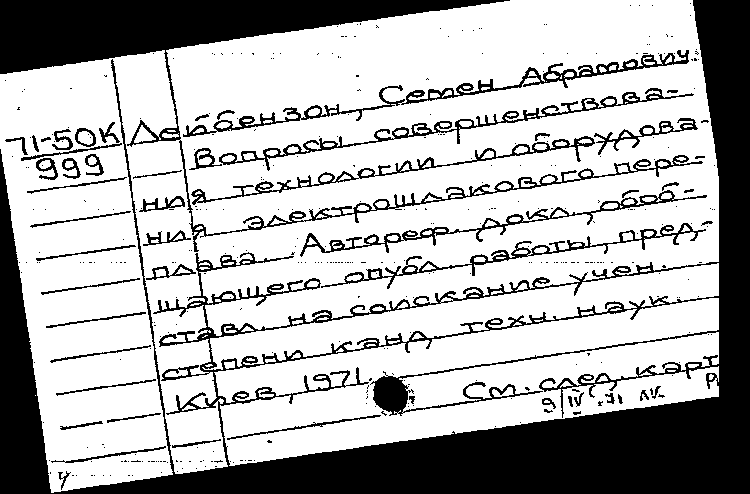 71-50К
999
Лейбензон, Семен Абрамович.
Вопросы совершенствова-
ния технологии и оборудова-
ния электрошлакового пере-
плава. Автореф. докл., обоб-
щающего опубл. работы, пред-
ставл. на соискание учен.
степени канд. техн. наук.
Киев, 1971.
См. след. карт
9/IV-71